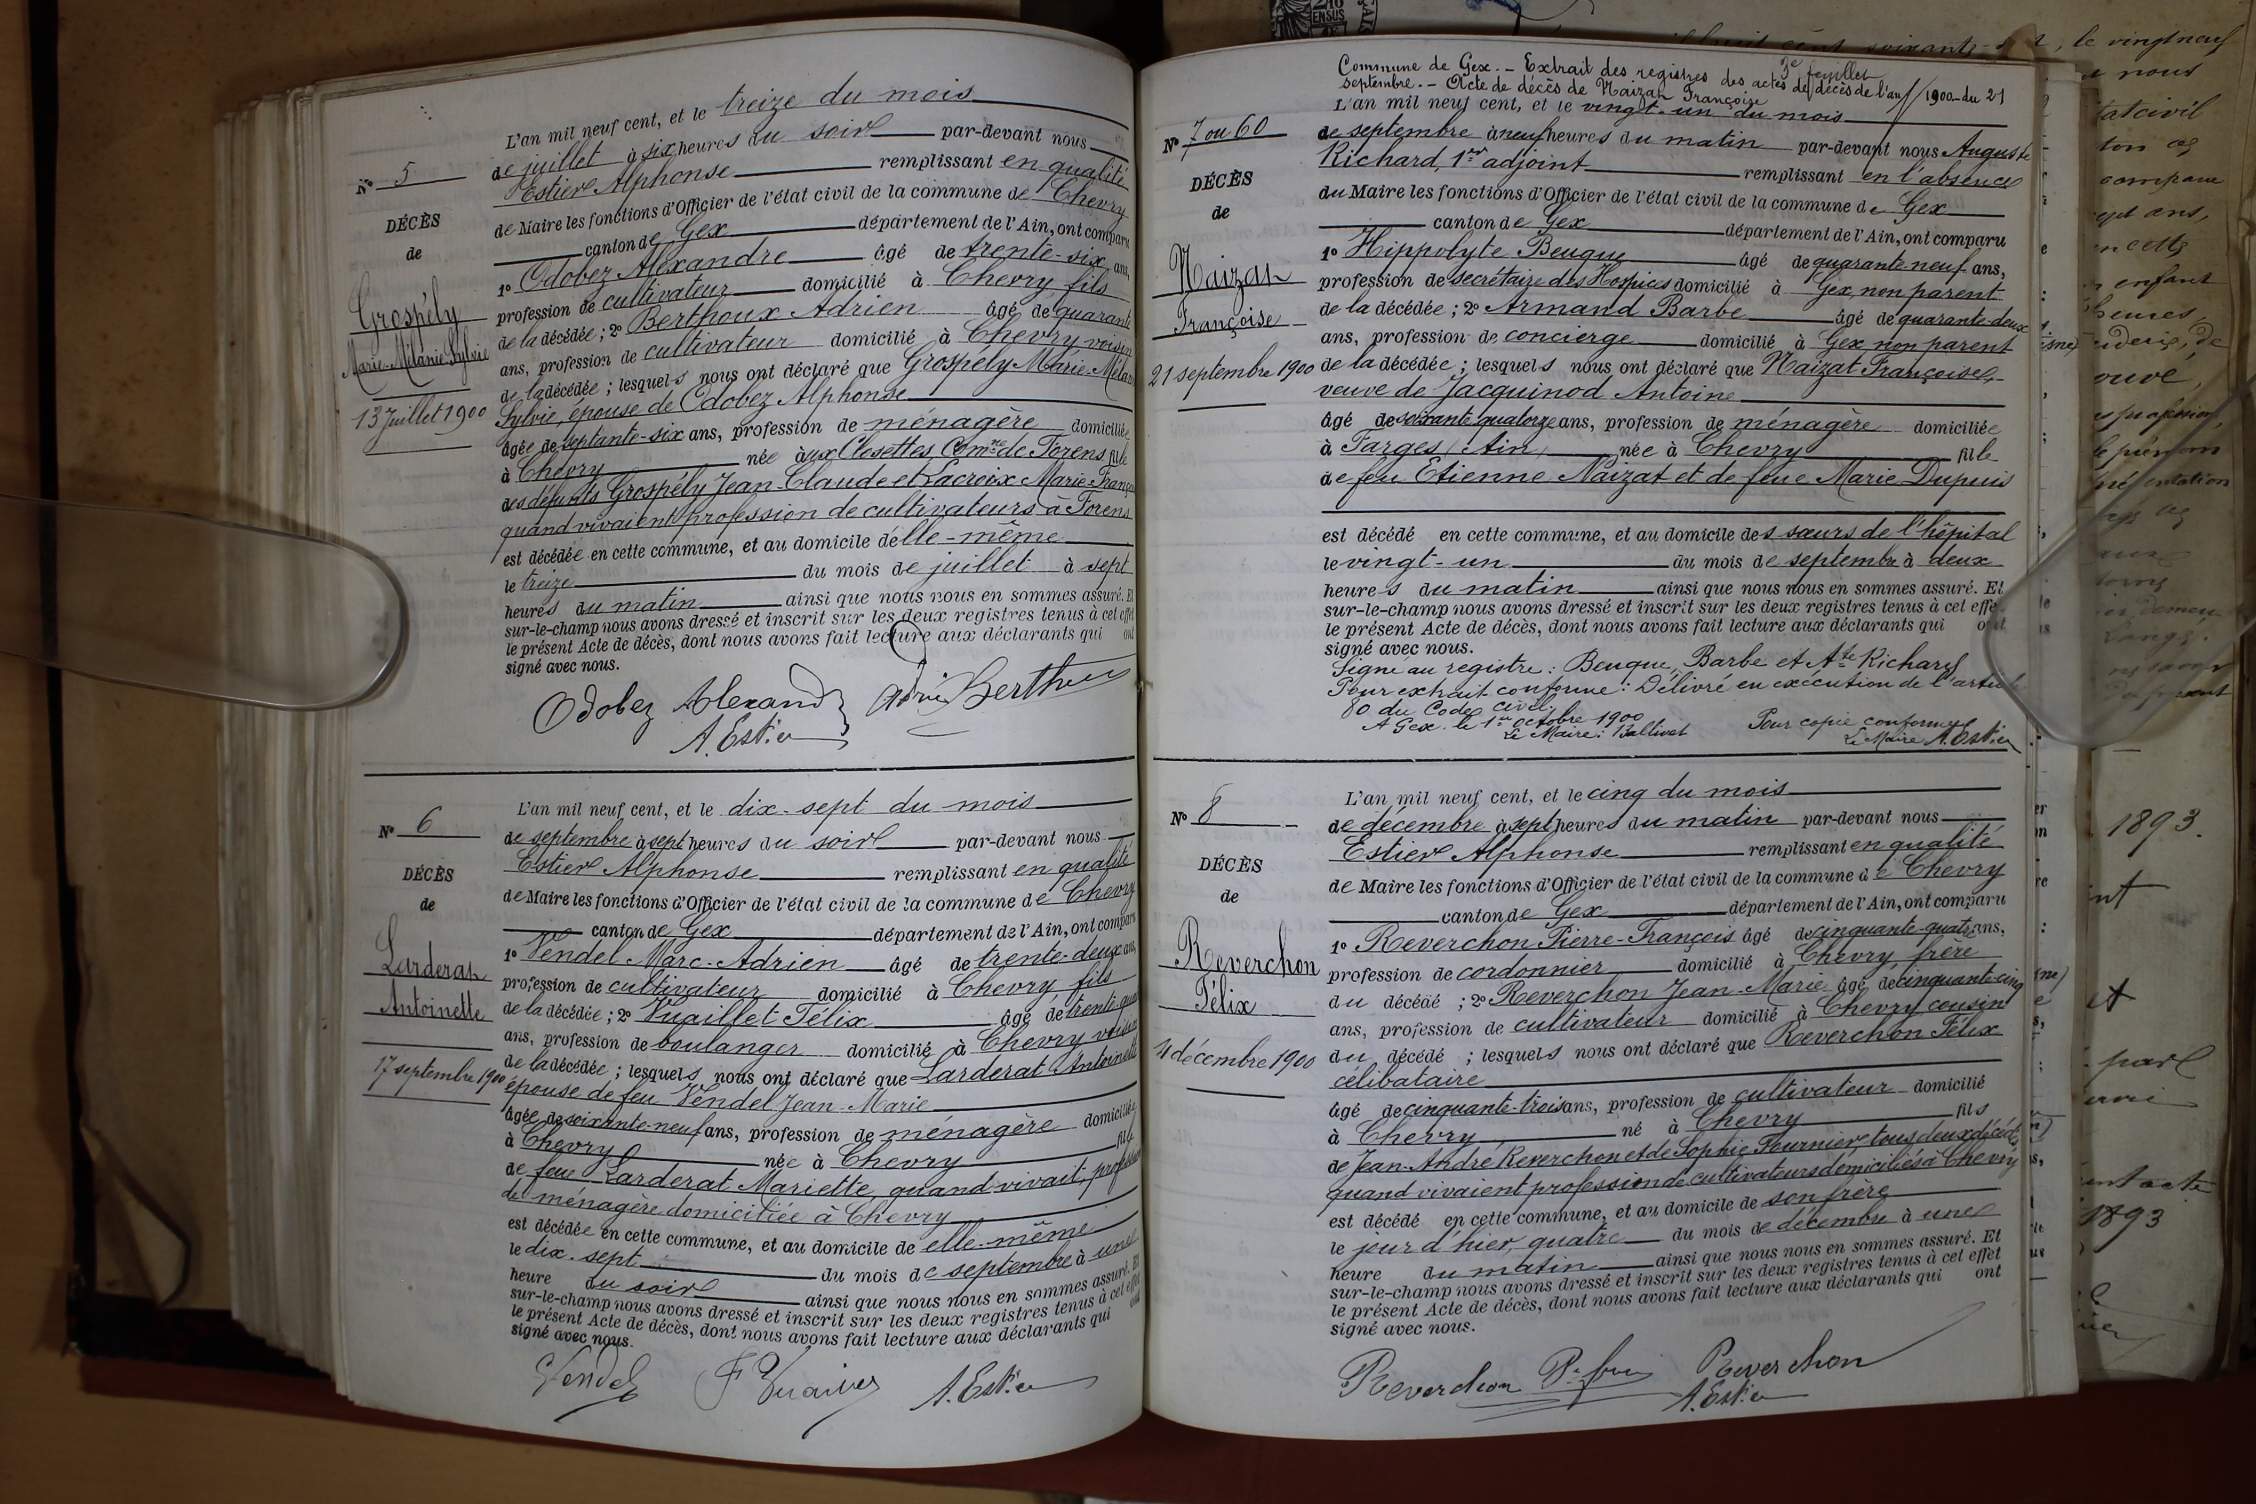 L'an mil neuf cent, et le treize du mois
N° 5
de juillet à six heures du soir par-devant nous
Estier Alphonse remplissant en qualité
de Maire les fonctions d'Officier de l'état civil de la commune de Chevry
canton de Gex département de l'Ain, ont comparu
DÉCÈS
de
Grospély
Marie-Mélanie Sylvie
13 Juillet 1900
1° Odobez Alexandre âgé de trente-six ans,
profession de cultivateur domicilié à Chevry fils
de la décédée ; 2° Berthoux Adrien âgé de quarante
ans, profession de cultivateur domicilié à Chevry voisin
de la décédée ; lesquels nous ont déclaré que Grospély Marie-Mélanie
Sylvie, épouse de Odobez Alphonse
âgée de septante-six ans, profession de ménagère domiciliée
à Chevry née aux Closettes, Comne de Forens fille
des défunts Grospély Jean-Claude et Lacroix Marie-Franç
quand vivaient profession de cultivateurs à Forens
est décédée en cette commune, et au domicile d'elle-même
le treize du mois de juillet à sept
heures du matin ainsi que nous nous en sommes assuré. Et
sur-le-champ nous avons dressé et inscrit sur les deux registres tenus à cet effet
le présent Acte de décès, dont nous avons fait lecture aux déclarants qui ont
signé avec nous.
Odobez Alexand Adrien Berthoux
A. Estier
N° 6
DÉCÈS
de
Larderat
Antoinette
17 septembre 1900
L'an mil neuf cent, et le dix-sept du mois
de septembre à sept heures du soir par-devant nous
Estier Alphonse remplissant en qualité
de Maire les fonctions d'Officier de l'état civil de la commune de Chevry
canton de Gex département de l'Ain, ont comparu
1° Vendel Marc-Adrien âgé de trente-deux ans,
profession de cultivateur domicilié à Chevry fils
de la décédée ; 2° Vuaillet Félix âgé de trente-qua
ans, profession de boulanger domicilié à Chevry voisin
de la décédée ; lesquels nous ont déclaré que Larderat Antoinette
épouse de feu Vendel Jean-Marie
âgée de soixante-neuf ans, profession de ménagère domiciliée
à Chevry née à Chevry fille
de feue Larderat Mariette, quand vivait, profession
de ménagère domiciliée à Chevry
est décédée en cette commune, et au domicile de elle-même
le dix-sept du mois de septembre à une
heure du soir ainsi que nous nous en sommes assuré. Et
sur-le-champ nous avons dressé et inscrit sur les deux registres tenus à cet effet
le présent Acte de décès, dont nous avons fait lecture aux déclarants qui ont
signé avec nous.
Vendel F Vuaillet A. Estier
3e feuillet
Commune de Gex. - Extrait des registres des actes de décès de l'an 1900 - du 21
septembre. - Acte de décès de Naizat Françoise
N° 7 ou 60
DÉCÈS
de
Naizat
Françoise
21 septembre 1900
L'an mil neuf cent, et le vingt-un du mois
de septembre à neuf heures du matin par-devant nous Auguste
Richard, 1er adjoint remplissant en l'absence
du Maire les fonctions d'Officier de l'état civil de la commune de Gex
canton de Gex département de l'Ain, ont comparu
1° Hippolyte Beuque âgé de quarante-neuf ans,
profession de secrétaire des Hospices domicilié à Gex, non parent
de la décédée ; 2° Armand Barbe âgé de quarante-deux
ans, profession de concierge domicilié à Gex non parent
de la décédée ; lesquels nous ont déclaré que Naizat Françoise,
veuve de Jacquinod Antoine
âgé de soixante-quatorze ans, profession de ménagère domiciliée
à Farges, Ain, née à Chevry fille
de feu Etienne Naizat et de feue Marie Dupuis
est décédé en cette commune, et au domicile des sœurs de l'hôpital
le vingt-un du mois de septembre à deux
heures du matin ainsi que nous nous en sommes assuré. Et
sur-le-champ nous avons dressé et inscrit sur les deux registres tenus à cet effet
le présent Acte de décès, dont nous avons fait lecture aux déclarants qui ont
signé avec nous.
Signé au registre : Beuque, Barbe et Ate Richard
Pour extrait conforme : Délivré en exécution de l'article
80 du Code civil.
A Gex le 1er octobre 1900
Le Maire : Ballivet
Pour copie conforme
Le Maire A. Estier
N° 8
DÉCÈS
de
Reverchon
Félix
4 décembre 1900
L'an mil neuf cent, et le cinq du mois
de décembre à sept heures du matin par-devant nous
Estier Alphonse remplissant en qualité
de Maire les fonctions d'Officier de l'état civil de la commune de Chevry
canton de Gex département de l'Ain, ont comparu
1° Reverchon Pierre-François âgé de cinquante-quatre ans,
profession de cordonnier domicilié à Chevry frère
du décédé ; 2° Reverchon Jean-Marie âgé de cinquante-cinq
ans, profession de cultivateur domicilié à Chevry cousin
du décédé ; lesquels nous ont déclaré que Reverchon Félix
célibataire
âgé de cinquante-trois ans, profession de cultivateur domicilié
à Chevry né à Chevry fils
de Jean-André Reverchon et de Sophie Fournier, tous deux décéd
quand vivaient profession de cultivateurs domiciliés à Chevry
est décédé en cette commune, et au domicile de son frère
le jour d'hier, quatre du mois de décembre à une
heure du matin ainsi que nous nous en sommes assuré. Et
sur-le-champ nous avons dressé et inscrit sur les deux registres tenus à cet effet
le présent Acte de décès, dont nous avons fait lecture aux déclarants qui ont
signé avec nous.
Reverchon Reverchon
A. Estier
le vingt neuf
nous
compare
enfant
1893.
1893